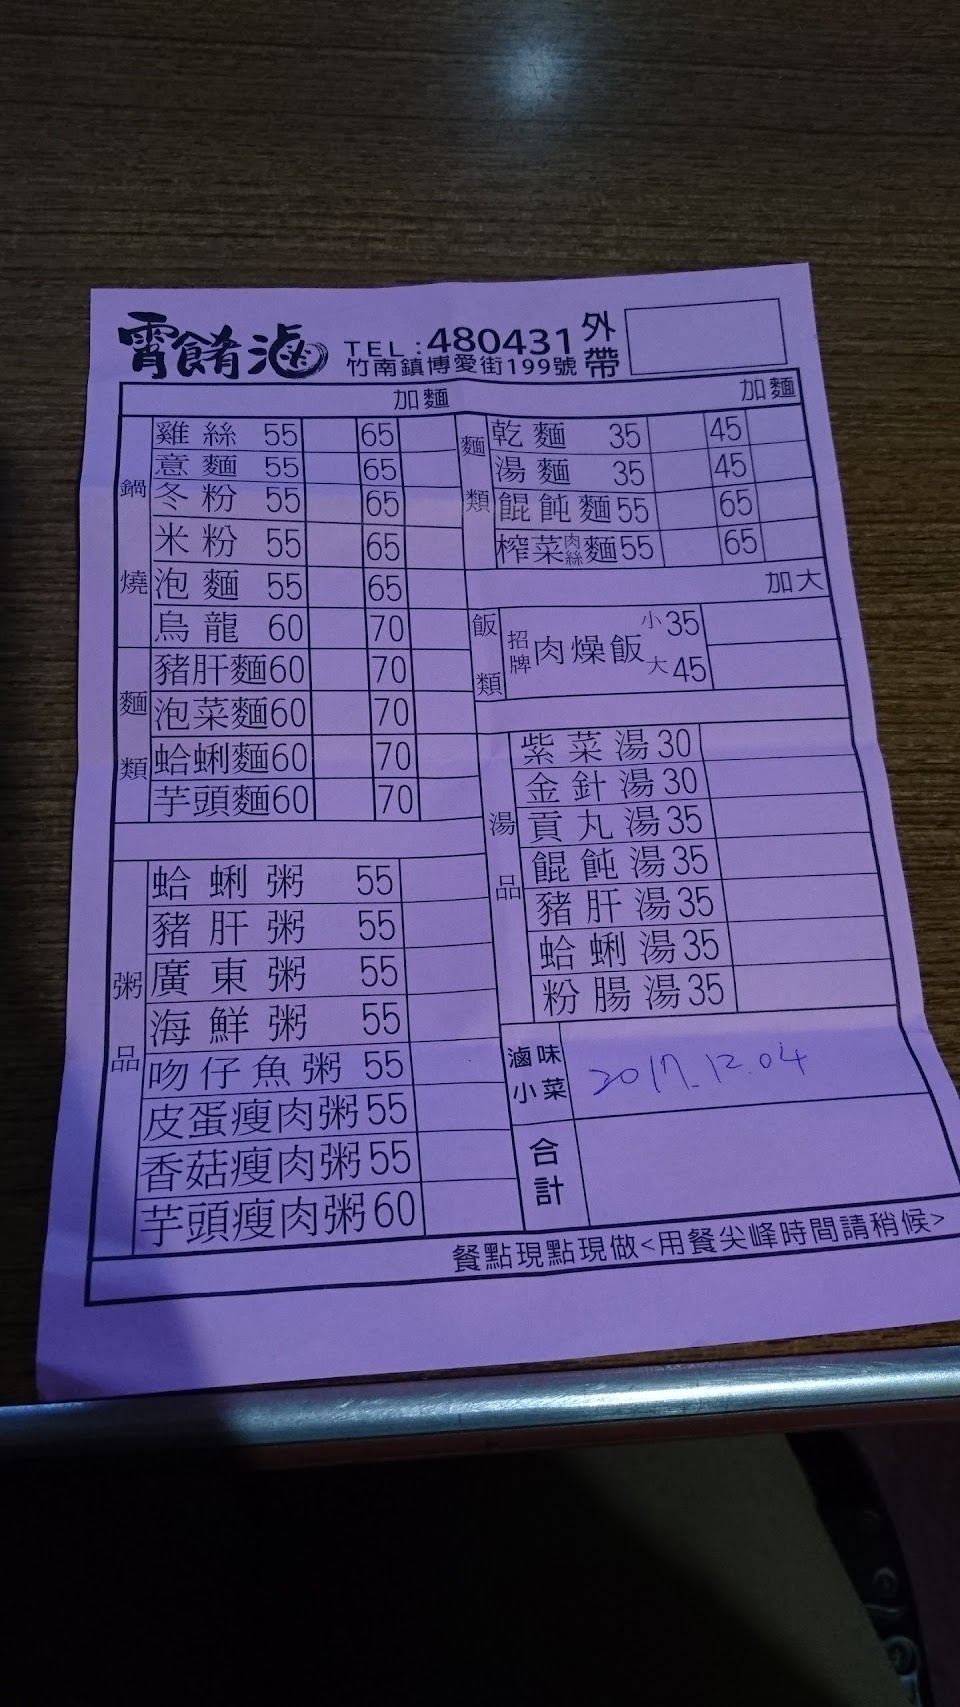 霄餚滷
TEL:480431
竹南鎮博愛街199號
外帶
加麵
鍋燒
雞絲 55 65
意麵 55 65
冬粉 55 65
米粉 55 65
泡麵 55 65
烏龍 60 70
麵類
豬肝麵60 70
泡菜麵60 70
蛤蜊麵60 70
芋頭麵60 70
粥品
蛤蜊粥 55
豬肝粥 55
廣東粥 55
海鮮粥 55
吻仔魚粥 55
皮蛋瘦肉粥55
香菇瘦肉粥55
芋頭瘦肉粥60
加麵
麵類
乾麵 35 45
湯麵 35 45
餛飩麵55 65
榨菜肉絲麵55 65
加大
飯類
招牌肉燥飯
小35
大45
湯品
紫菜湯30
金針湯30
貢丸湯35
餛飩湯35
豬肝湯35
蛤蜊湯35
粉腸湯35
滷味小菜
2017.12.04
合計
餐點現點現做<用餐尖峰時間請稍候>